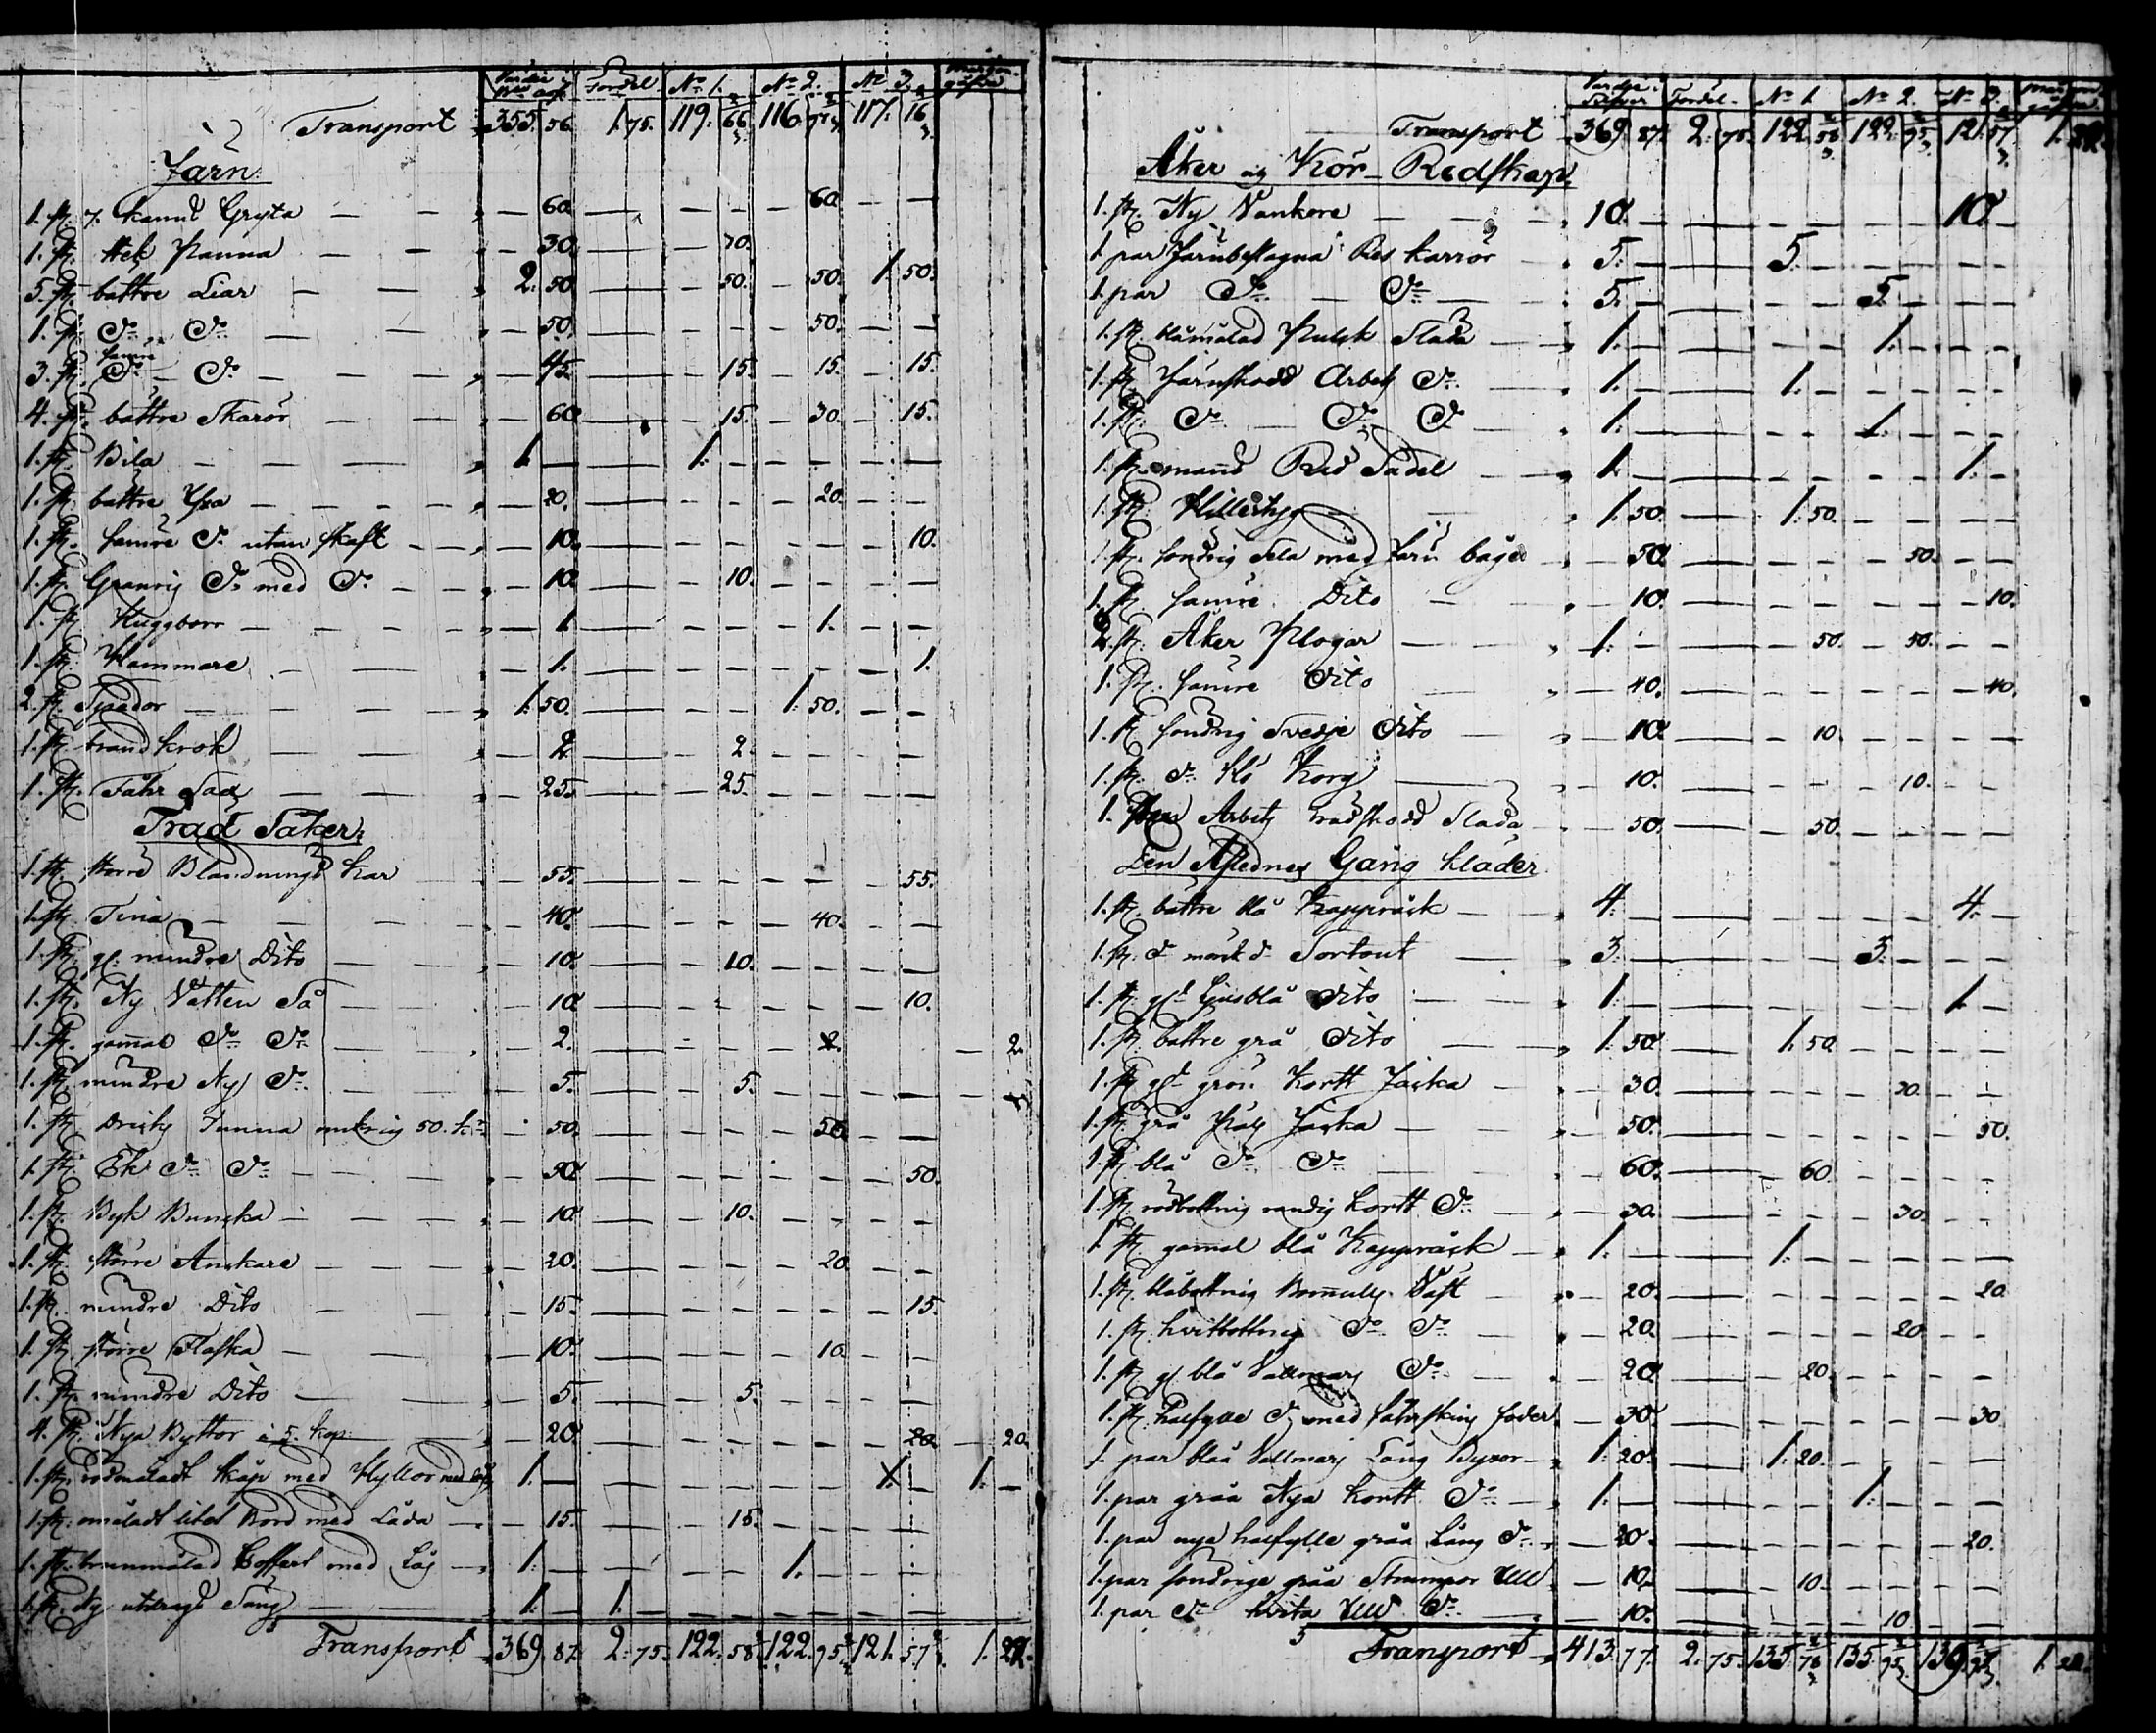 Fördel No 1. No 2. No 3.
Transport 355. 56. 1. 75. 119. 66 116. 117. 16
Järn.
1. st. 7. kanne Gryta 60. 60.
1. st. Stek Panna 30. 30.
5. st. bättre Liar 2. 50. 50. 50. 1. 50.
1. st. Do Do 50. 50.
3. st. sämre Do Do 45. 15. 15. 15.
4. st. bättre Skäror 60. 15. 30. 15.
1. st. Bila 1. 1.
1. st. bättre Yxa 20. 20.
1. st. sämre Do utan skaft 10. 10.
1. st. Do med Do 10. 10.
1. st. Huggborr 1. 1.
1. st. Hammare 1. 1.
2. st. Spador 1. 50. 1. 50.
1. st. brand krok 2. 2.
1. st. Fåhr Sax 25. 25.
Träd Saker,
1. st. större Blandnings Kar 55. 55.
1. st. Tina 40. 40.
1. st. gl. mindre Dito 10. 10.
1. st. Ny Vatten Så 10. 10.
1. st. gammal Do Do 2. 2. 2.
1. st. mindre Ny Do 5. 5.
1. st. Dricks Tunna omkring 50. kr 50. 50.
1. st. Ek Do Do 50. 50.
1. st. Byk Buncka 10. 10.
1. st. större Anckare 20. 20.
1. st. mindre Dito 15. 15.
1. st. större Flaska 10. 10.
1. st. mindre Dito 5. 5.
4. st. Nya Byttor à 5. kop. 20. 20. 20.
1. st. rödmåladt skåp med Hyllor med lås 1. 1. 1.
1. st. omåladt litet Bord med Låda 15. 15.
1. st. brunmålad Coffert med Lås 1. 1.
1. st. Ny utdrags Säng 1. 1.
Transport 369. 87. 2. 75. 122. 58 122. 95 121. 57 1. 22.
Fördel No 1. No 2. No 3.
Transport 369. 87. 2. 75. 122. 58 122. 95 121. 57 1. 22.
Åker og Kör Redskap,
1. st. Ny Vankere 10. 10.
1. par Järnbeslagna Res kärror 5. 5.
1. par Do Do 5. 5.
1. st. blåmålad Pulck Släda 1. 1.
1. st. Järnskodd Arbets Do 1. 1.
1. st. Do Do Do 1. 1.
1. st. mans Rid Sadel 1. 1.
1. st. 1. 50. 1. 50.
1. st. söndrig Sela med Järn båge 50. 50.
1. st. sämre Dito 10. 10.
2. st. Åker Plogar 1. 50. 50.
1. st. sämre Dito 40. 40.
1. st. söndrig Svedje Dito 10. 10.
1. st. Do Hö Korg 10. 10.
1. Arbets trädskodd Släda 50. 50.
Den Aflednes Gång kläder
1. st. bättre blå Kappråck 4. 4.
1. st. Do mörk Do Sortout 3. 3.
1. st. gl. Ljusblå Dito 1. 1.
1. st. bättre grå Dito 1. 50. 1. 50.
1. st. gl. grön Kortt Jacka 30. 30.
1. st. grå Pälts Jacka 50. 50.
1. st. blå Do Do 60. 60.
1. st. rödbottnig randig kortt Do 30. 30.
1. st. gammal blå Kappråck 1. 1.
1. st. blåbottnig Bomulls Väst 20. 20.
1. st. hvitbottnig Do Do 20. 20.
1. st. gl. blå Vallmars Do 20. 20.
1. st. halfylle Do med fårskins foder 30. 30.
1. par blåa Vallmars Lång Byxor 1. 20. 1. 20.
1. par gråa Nya kortt Do 1. 1.
1. par nya halfylle gråa Lång Do 20. 20.
1. par söndrige gråa Strumpor Ull 10. 10.
1. par Do hvita Ull Do 10. 10
Transport 413. 77. 2. 75. 135. 78 135. 95 1. 22.